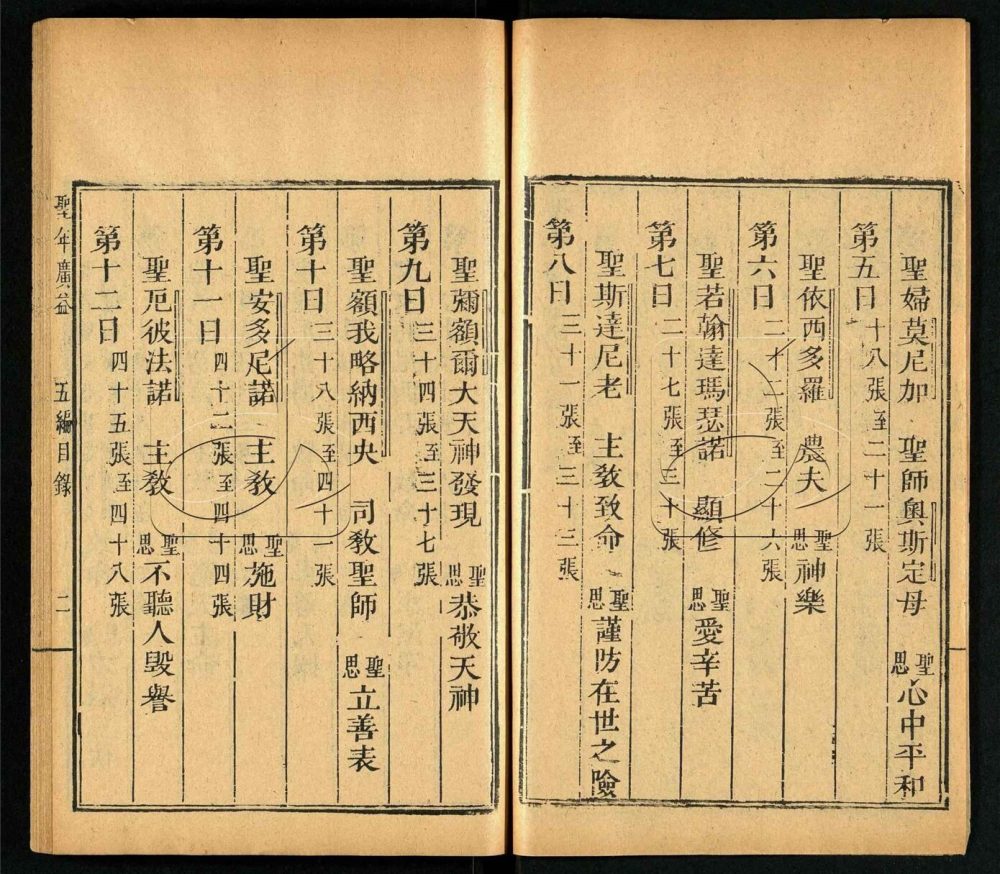 聖婦莫尼加 聖師奧斯定母 聖思心中平和
第五日 十八張至二十一張
聖依西多羅 農夫 聖思神樂
第六日 二十二張至二十六張
聖若翰達瑪瑟諾 顯修 聖思愛辛苦
第七日 二十七張至三十張
聖斯達尼老 主敎致命 聖思謹防在世之險
第八日 三十一張至三十三張
聖彌額爾大天神發現 聖思恭敬天神
第九日 三十四張至三十七張
聖額我略納西央 司敎聖師 聖思立善表
第十日 三十八張至四十一張
聖安多尼諾 主敎 聖思施財
第十一日 四十二張至四十四張
聖厄彼法諾 主敎 聖思不聽人毀譽
第十二日 四十五張至四十八張
聖年廣益 五編目錄 二